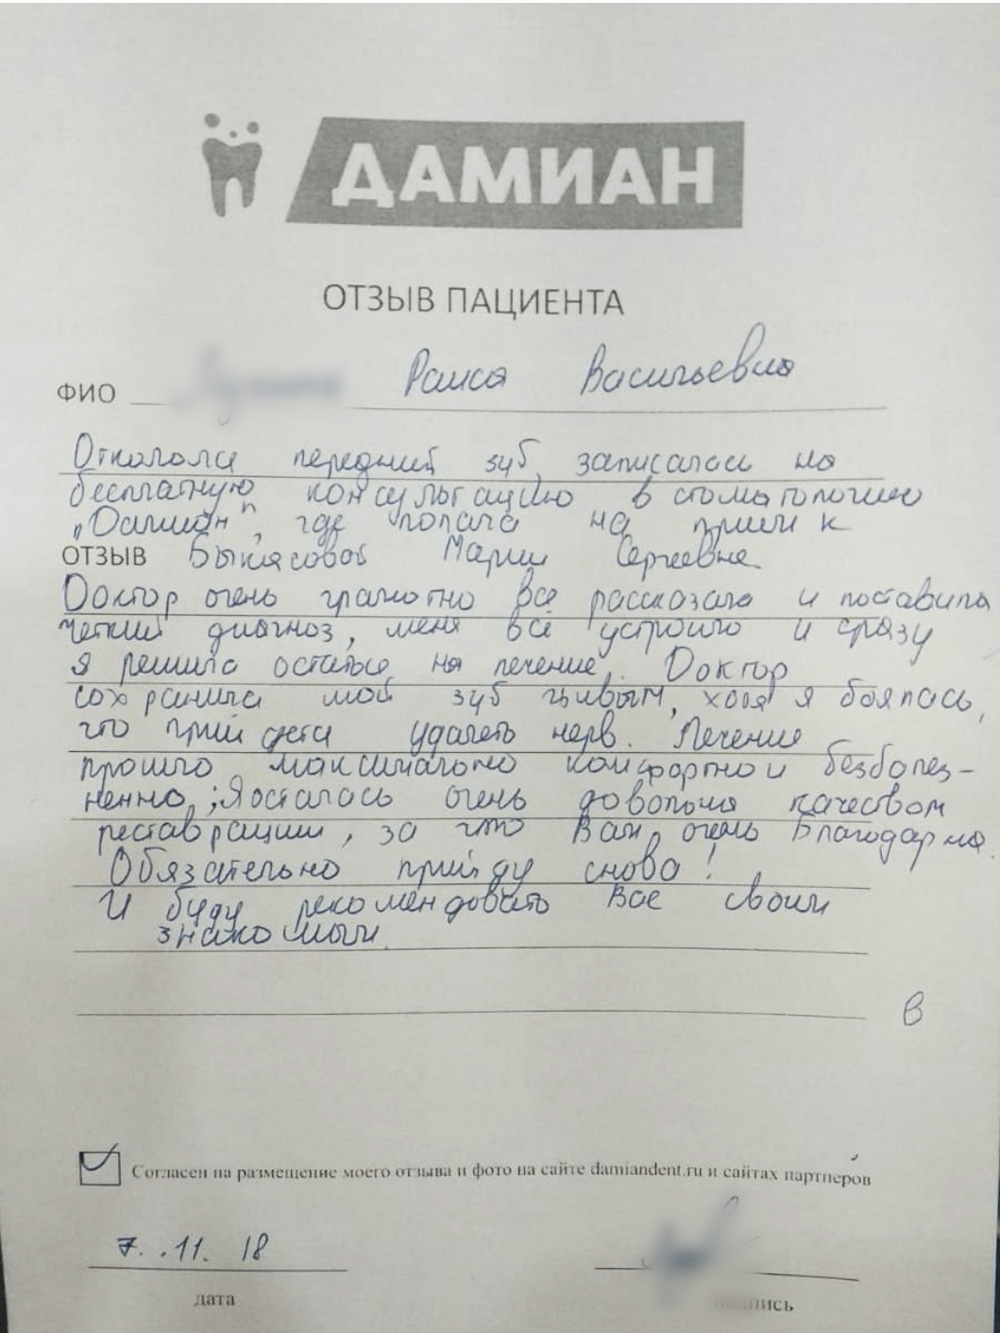 ДАМИАН
ОТЗЫВ ПАЦИЕНТА
ФИО Раиса Васильевна
Откололся передний зуб, записалась на
бесплатную консультацию в стоматологию
„Дамиан", где попала на прием к
ОТЗЫВ Бекясовой Марии Сергеевне
Доктор очень грамотно все рассказала и поставила
четкий диагноз, меня всё устроило и сразу
я решила остаться на лечение. Доктор
сохранила мой зуб живым, хотя я боялась,
что прийдется удалять нерв. Лечение
прошло максимально комфортно и безболез-
ненно, Я осталась очень довольна качеством
реставрации, за что Вам очень Благодарна.
Обязательно прийду снова!
И буду рекомендовать Вас своим
знакомым.
в
Согласен на размещение моего отзыва и фото на сайте damiandent.ru и сайтах партнеров
7. .11. 18
дата
подпись